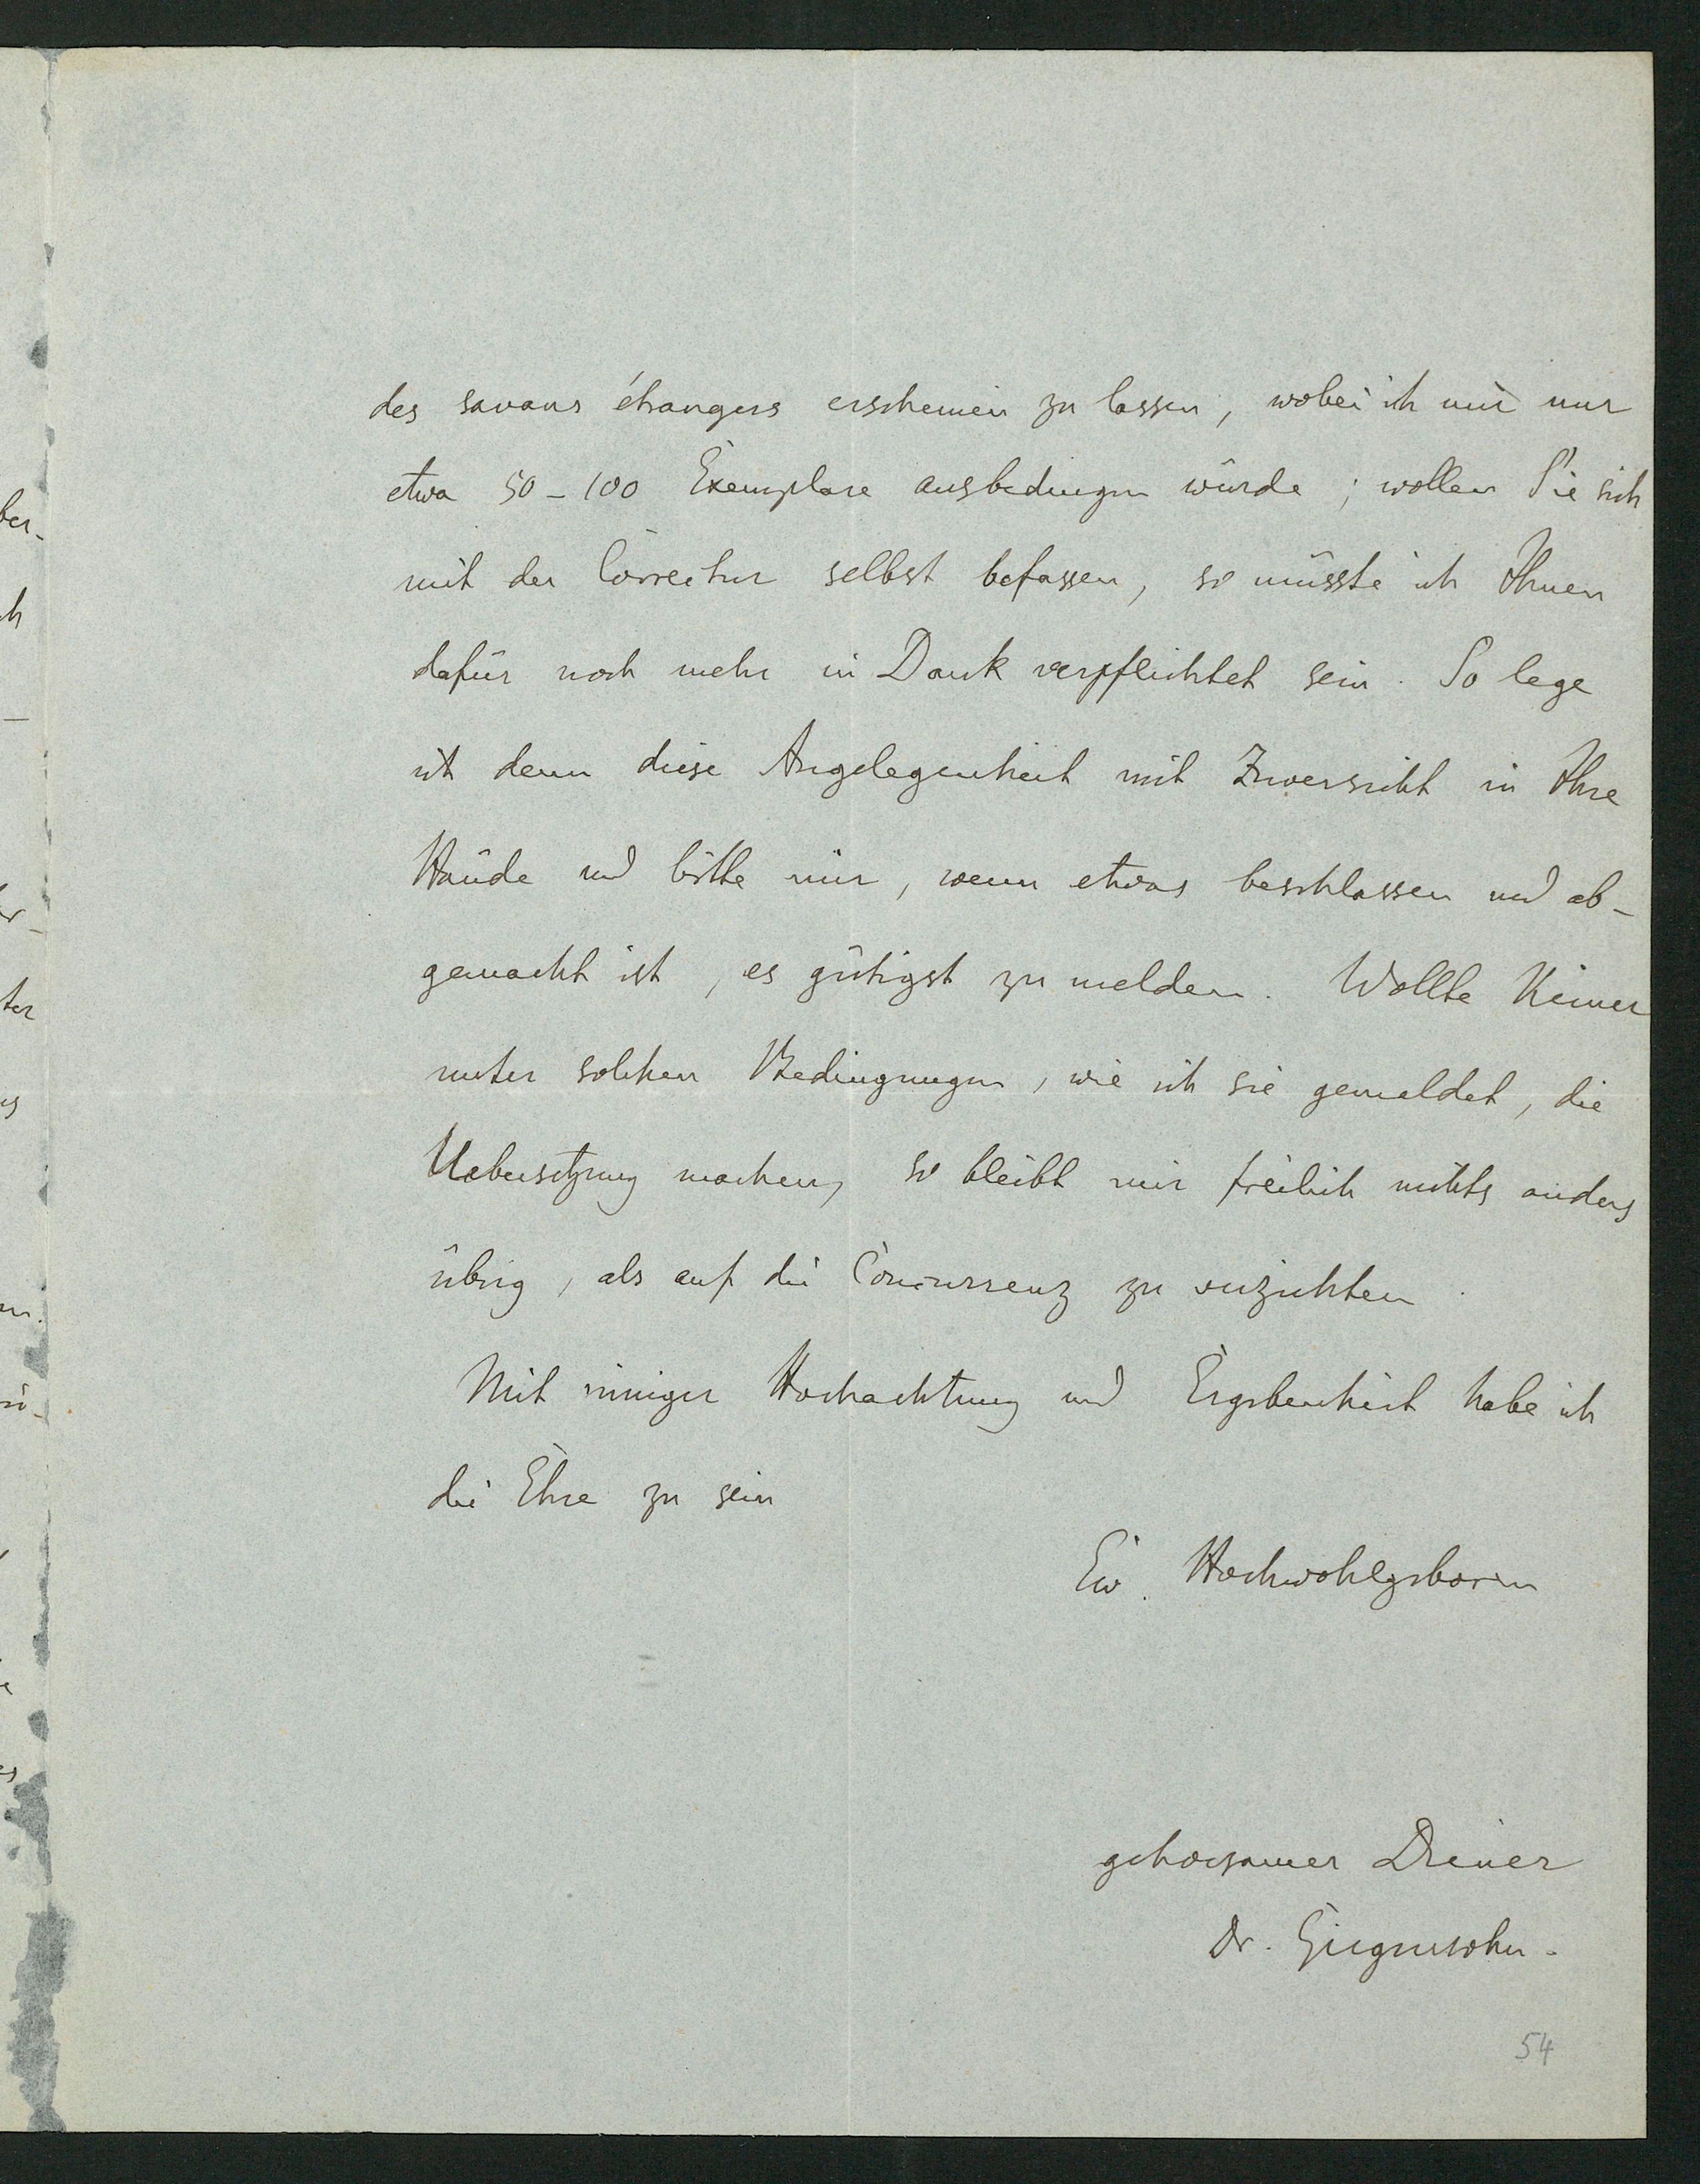 des savans étrangers erscheinen zu lassen, wobei ich mir nur
etwa 50-100 Exemplare ausbedingen würde; wollen Sie sich
mit der Correctur selbst befassen, so müsste ich Ihnen
dafür noch mehr in Dank verpflichtet sein. So lege
ich denn diese Angelegenheit mit Zuversicht in Ihre
Hände und bitte mir, wenn etwas beschlossen und ab-
gemacht ist, es gütigst zu melden. Wollte Keiner
unter solchen Bedingungen, wie ich sie gemeldet, die
Uebersetzung machen, so bleibt mir freilich nichts anders
übrig, als auf die Concurrenz zu verzichten.
Mit inniger Hochachtung und Ergebenheit habe ich
die Ehre zu sein
Ew. Hochwohlgeboren
gehorsamer Diener
Dr. Girgensohn.
54